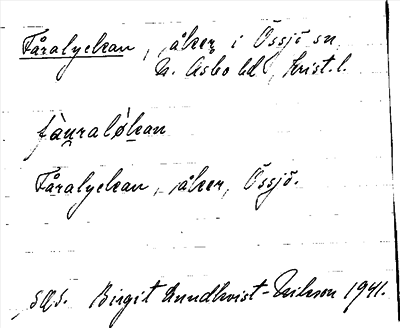 Fåralyckan, åker i Össjö sn
N. Åsbo hd, Krist.l.
fàu̯ralǿkan
Fåralyckan, åker, Össjö.
SOS. Birgit Lundkvist-Nilsson 1941.